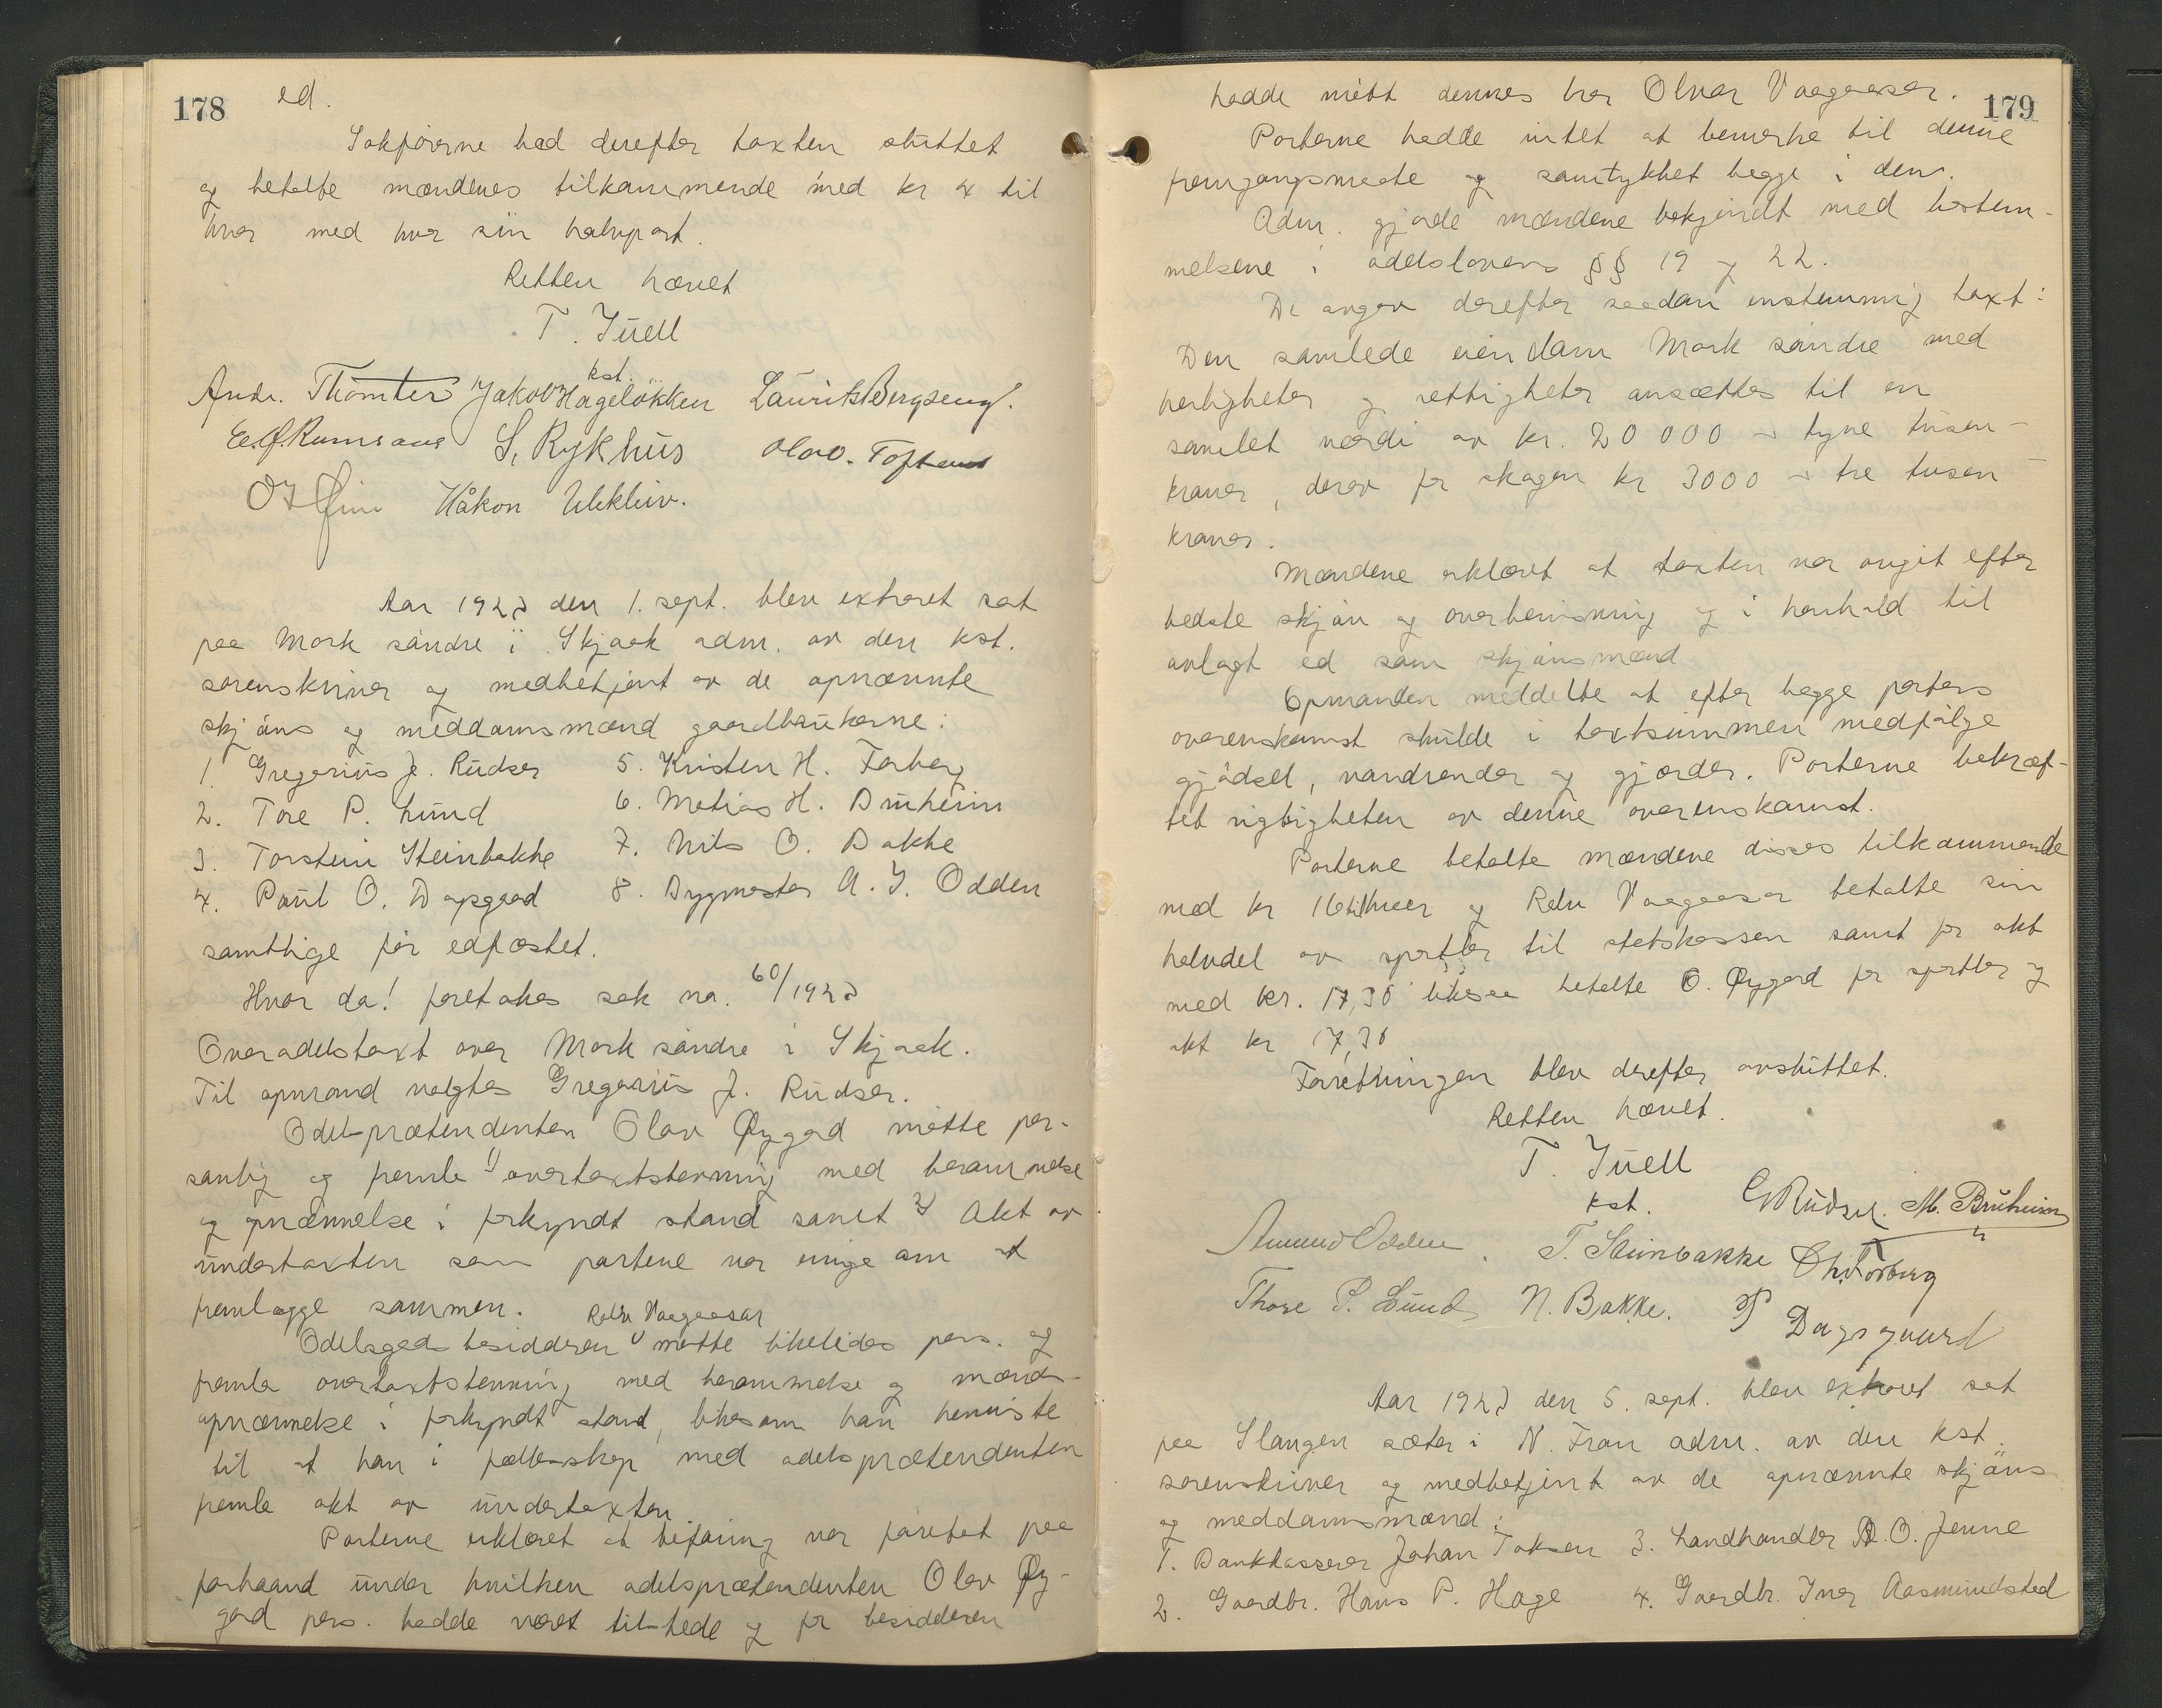 178
ed.
Sakførerne bad derefter taxten sluttet
og betalte mændenes tilkommende med kr 4 til
hver med hver sin halvpart.
Retten hævet
T. Juell
kst.
Andr. Thomter Jakob Hageløkken Laurits Bergseng.
S. Rykhus Olav. Toftens
Håkon Ulekleiv.
Aar 1923 den 1. sept. blev extraret sat
paa Mork søndre i Skjaak adm. av den kst.
sorenskriver og medbetjent av de opnævnte
skjøns og meddomsmænd gaardbrukerne:
1. Gregorius J. Rudser 5. Kristen H. Forberg
2. Tore P. Lund 6. Matias H. Bruheim
3. Torstein Steinbakke 7. Nils O. Bakke
4. Paul O. Dagsgaard 8. Bygmester A. J. Odden
samtlige før edfæstet.
Hvor da! foretokes sak no. 60/1923
Overodelstaxt over Mork søndre i Skjaak.
Til opmand valgtes Gregorius J. Rudser.
Odelsprætendenten Olav Øygard møtte per-
sonlig og fremla 1) overtaxtstevning med berammelse
og opnævnelse i forkyndt stand samt 2) Akt av
undertaxten som partene var enige om at
fremlægge sammen.
Rolv Vaagaasar
Odelsgods besidderen møtte likeledes pers. og
fremla overtaxtstevning med berammelse og mænds-
opnævnelse i forkyndt stand, likesom han henviste
til at han i fællesskap med odelsprætendenten
fremla akt av undertaxten
Parterne erklæret at befaring var foretat paa
forhaand under hvilken odelsprætendenten Olav Øy-
gard pers. hadde været tilstede og for besidderen
179
hadde møtt dennes bror Olvar Vaagaasar.
Parterne hadde intet at bemerke til denne
fremgangsmaate og samtykket begge i den.
Adm. gjorde mændene bekjendt med bestem-
melsene i odelslovens §§ 19 og 22.
De avgav derefter saadan enstemmig taxt:
Den samlede eiendom Mork søndre med
herligheter og rettigheter ansættes til en
samlet værdi av kr. 20 000 - tyve tusen -
kroner, derav for skogen kr 3000 - tre tusen -
kroner.
Mændene erklæret at taxten var avgit efter
bedste skjøn og overbevisning og i henhold til
avlagt ed som skjønsmænd.
Opmanden meddelte at efter begge parters
overenskomst skulde i taxtsummen medfølge
gjødsel, vandrender og gjærder. Parterne bekræf-
tet rigtigheten av denne overenskomst.
Parterne betalte mændene disses tilkommende
med kr 16 til hver og Rolv Vaagaasar betalte sin
halvdel av sportler til statskassen samt for akt
med kr. 17,30 likesaa betalte O. Øygard for sportler og
akt kr 17,30
Forretningen blev derefter avsluttet.
Retten hævet.
T. Juell
kst. G Rudser. M. Bruheim
Amund Odden. T. Steinbakke Chr. Forberg
Thore P. Lund N. Bakke. P Dagsgaard
Aar 1923 den 5. sept. blev extraret sat
paa Slangen sæter i N. Fron adm. av den kst.
sorenskriver og medbetjent av de opnævnte skjøns
og meddomsmænd:
1. Bankkasserer Johan Toksen 3. Landhandler O. Jenne
2. Gaardbr. Hans P. Hage 4. Gaardbr. Iver Aasmundstad